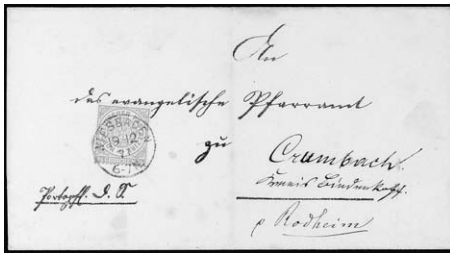 An
das evangelische Pfarramt
zu
Crumbach
Kreis Biedenkopf.
p Rodheim
Portopfl. D. S.
WIESBADEN
19 12
6-7